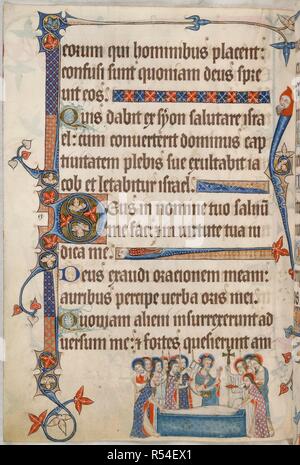 eorum qui hominibus placent:
confusi sunt quoniam deus spre
uit eos.
Quis dabit ex syon salutare isra
el: cum converterit dominus cap
tiuitatem plebis sue exultabit ia
cob et letabitur israel.
Deus in nomine tuo saluū
me fac: et in uirtute tua iu
dica me.
Deus exaudi orationem meam:
auribus percipe uerba oris mei.
Quoniam alieni insurrexerunt ad
uersum me: et fortes quesierunt am
alamy
Image ID: R54EX1
www.alamy.com